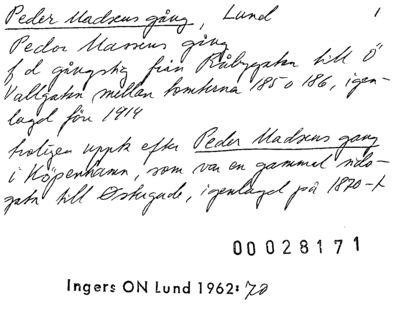 Peder Madsens gång, Lund 1
Peder Massens gång
f d gångstig från Råbygatan till Ö
Vallgatan mellan tomterna 185 o 186, igen-
lagd före 1914
troligen uppk efter Peder Madsens gang
i Köpenhamn, som var en gammal sido-
gata till Østergade, igenlagd på 1870-t
00028171
Ingers ON Lund 1962: 70